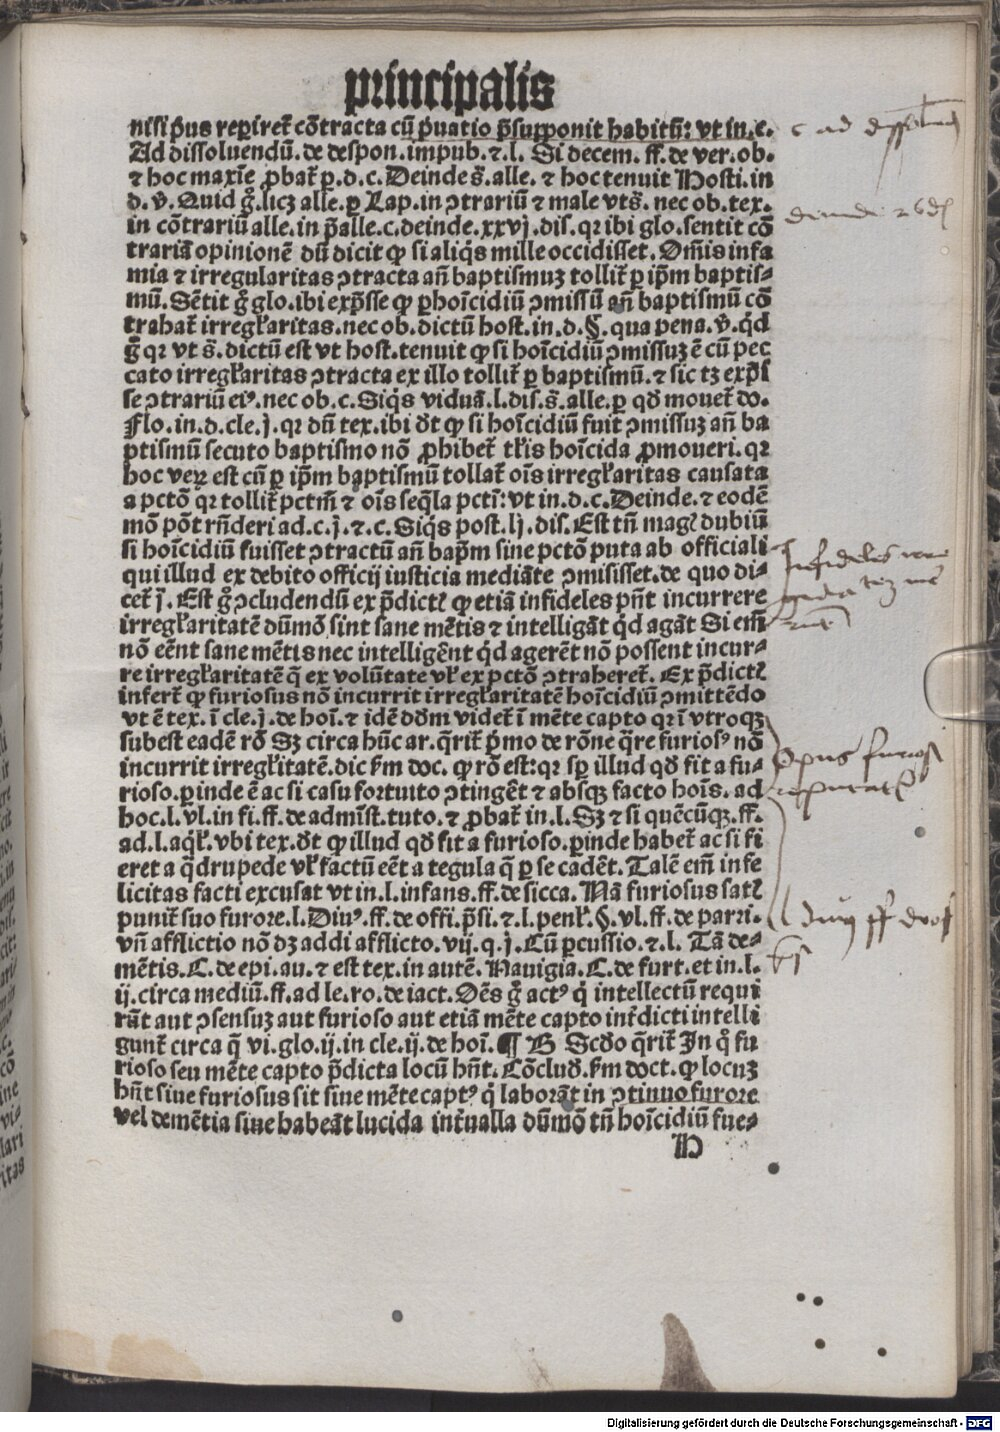 principalis
nisi p̄us reperiret̄ cōtracta cū p̄uatio p̄supponit habitū: vt in.c.
Ad dissoluendū. de despon.impub.⁊.l. Si decem. ff. de ver.ob.
⁊ hoc maxīe ꝓbat̄ p̱.d.c. Deinde s̄.alle. ⁊ hoc tenuit Hosti.in
d.v̄. Quid g̊.licꝫ alle.p̱ Lap.in ↄtrariū ⁊ male vt s̄. nec ob.tex.
in cōtrariū alle.in p̄alle.c.deinde.xxvj.dis.qꝛ ibi glo.sentit cō
trariā opinionē dū dicit ꝙ si aliq̄s mille occidisset. Om̄is infa
mia ⁊ irregularitas ↄtracta an̄ baptismuꝫ tollit̄ p̱ ip̄m baptis-
mū. Sētit g̊ glo.ibi exp̄sse ꝙ p̱ hoīcidiū ↄmissū an̄ baptismū cō
trahat̄ irregl̄aritas.nec ob. dictū host.in.d.§.qua pena.v̄.q̇d
g̊ qꝛ vt s̄.dictū est vt host.tenuit ꝙ si hoīcidiū ↄmissuꝫ ē cū pec
cato irregl̄aritas ↄtracta ex illo tollit̄ p̱ baptismū.⁊ sic tꝫ exp̄s
se ↄtrariū eiꝰ.nec ob.c.Siq̄s viduā.l.dis.s̄.alle.p̱ qd̄ mouet̄ do.
Flo.in.d.cle.j.qꝛ dū tex.ibi dt̄ ꝙ si hoīcidiū fuit ↄmissuꝫ an̄ ba
ptismū secuto baptismo nō ꝓhibet̄ tl̄is hoīcida ꝓmoueri.qꝛ
hoc veꝝ est cū p̱ ip̄m baptismū tollat̄ oīs irregl̄aritas causata
a pctō qꝛ tollit̄ pctm̄ ⁊ oīs seq̄la pcti: vt in.d.c.Deinde.⁊ eodē
mō pōt rn̄deri ad.c.j.⁊.c.Siq̄s post.lj.dis.Est tn̄ magꝭ dubiū
si hoīcidiū fuisset ↄtractū an̄ bapm̄ sine pctō puta ab officiali
qui illud ex debito officij iusticia mediāte ↄmisisset.de quo di-
cet̄ j̄. Est g̊ ↄcludendū ex p̄dictꝭ ꝙ etiā infideles pn̄t incurrere
irregl̄aritatē dūmō sint sane mētis ⁊ intelligāt q̇d agāt Si em̄
nō eēnt sane mētis nec intelligēnt q̇d agerēt nō possent incur-
re irregl̄aritatē q̄ ex volūtate vl̄ ex pctō ↄtraheret̄. Ex p̄dictꝭ
infert̄ ꝙ furiosus nō incurrit irregl̄aritatē hoīcidiū ↄmittēdo
vt ē tex.ī cle.j.de hoī.⁊ idē dd̄m videt̄ ī mēte capto qꝛ ī vtroqꝫ
subest eadē rō Sꝫ circa hūc ar.q̄rit̄ p̄mo de rōne q̄re furiosꝰ nō
incurrit irregl̄itatē.dic ẜm doc. ꝙ rō est:qꝛ sp̱ illud qd̄ fit a fu-
rioso.p̱inde ē ac si casu fortuito ↄtingēt ⁊ absqꝫ facto hoīs. ad
hoc.l.vl.in fi.ff.de admīst.tuto.⁊ ꝓbat̄ in.l.Sꝫ ⁊ si quēcūqꝫ.ff.
ad.l.aq̇l̄.vbi tex.dt̄ ꝙ illud qd̄ fit a furioso.p̱inde habet̄ ac si fi
eret a q̄drupede vl̄ factū eēt a tegula q̄ p̱ se cadēt. Talē em̄ infe
licitas facti excusat vt in.l.infans.ff.de sicca. Nā furiosus satꝭ
punit̄ suo furore.l.Diuꝰ.ff.de offi.p̄si.⁊.l.penl̄.§.vl.ff.de parri.
vn̄ afflictio nō dꝫ addi afflicto.vij.q.j.Cū p̱cussio.⁊.l. Tā de-
mētis.C.de epi.au.⁊ est tex.in autē.Nauigia.C.de furt.et in.l.
ij.circa mediū.ff.ad le.ro.de iact.Oēs g̊ actꝰ q̇ intellectū requi
rūt aut ↄsensuꝫ aut furioso aut etiā mēte capto int̄dicti intelli
gunt̄ circa q̄ vi.glo.ij.in cle.ij.de hoī.¶ B Scd̄o q̄rit̄ In q̊ fu
rioso seu mēte capto p̄dicta locū hn̄t. Cōclud̄.ẜm doct.ꝙ locuꝫ
hn̄t siue furiosus sit siue mēte captꝰ q̇ laborāt in ↄtinuo furore
vel demētia siue habeāt lucida int̄ualla dūmō tn̄ hoīcidiū fue-
H
c ad
deinde 26 di
Infideles
furios
reputat̄
Digitalisierung gefördert durch die Deutsche Forschungsgemeinschaft - DFG